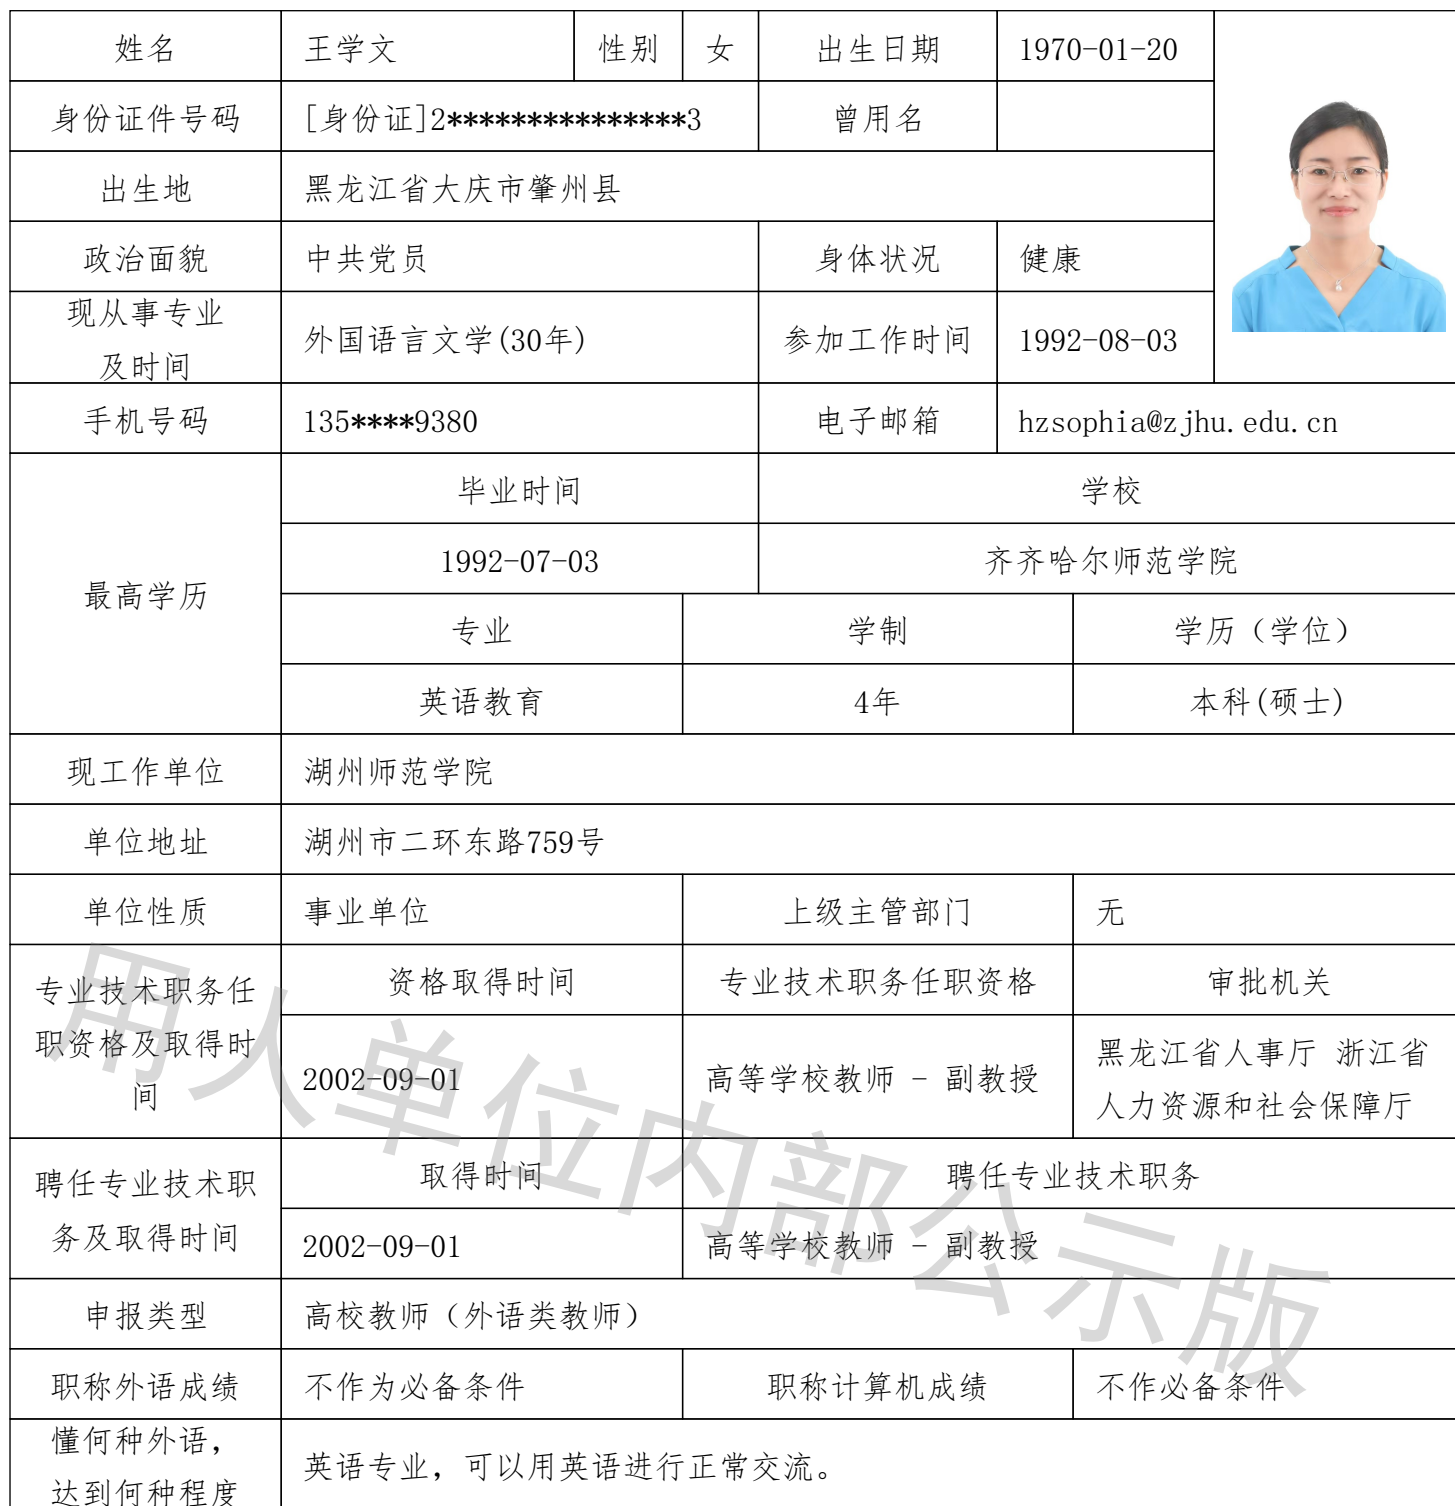 姓名 王学文 性别 女 出生日期 1970-01-20
身份证件号码 [身份证]2***************3 曾用名
出生地 黑龙江省大庆市肇州县
政治面貌 中共党员 身体状况 健康
现从事专业
及时间
外国语言文学(30年) 参加工作时间 1992-08-03
手机号码 135****9380 电子邮箱 hzsophia@zjhu.edu.cn
最高学历
毕业时间 学校
1992-07-03 齐齐哈尔师范学院
专业 学制 学历（学位）
英语教育 4年 本科(硕士)
现工作单位 湖州师范学院
单位地址 湖州市二环东路759号
单位性质 事业单位 上级主管部门 无
专业技术职务任
职资格及取得时
间
资格取得时间 专业技术职务任职资格 审批机关
2002-09-01 高等学校教师 - 副教授
黑龙江省人事厅 浙江省
人力资源和社会保障厅
聘任专业技术职
务及取得时间
取得时间 聘任专业技术职务
2002-09-01 高等学校教师 - 副教授
申报类型 高校教师（外语类教师）
职称外语成绩 不作为必备条件 职称计算机成绩 不作必备条件
懂何种外语，
达到何种程度
英语专业，可以用英语进行正常交流。
用人单位内部公示版